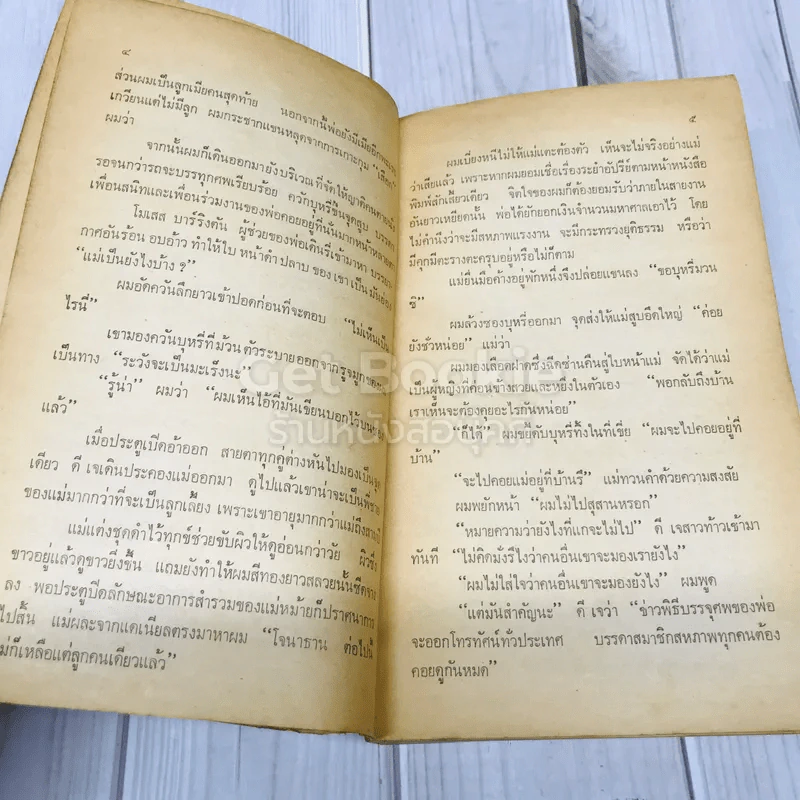 ๔
ส่วนผมเป็นลูกเมียคนสุดท้าย นอกจากนี้พ่อยังมีเมียอีก
เกวียนแต่ไม่มีลูก ผมกระชากแขนหลุดจากการเกาะกุม
ผมว่า
จากนั้นผมก็เดินออกมายังบริเวณที่จัดให้ญาติคนตาย
รอจนกว่ารถจะบรรทุกศพเรียบร้อย ควักบุหรี่ขึ้นจุดสูบ บรรดา
เพื่อนสนิทและเพื่อนร่วมงานของพ่อคอยอยู่ที่นั่นมากหน้า
โมเสส บาร์ริงตัน ผู้ช่วยของพ่อเดินรี่เข้ามาหา
กาศอันร้อน อบอ้าว ทำให้ใบ หน้าดำ ปลาบ ของ เขา เป็น มัน
“แม่เป็นยังไงบ้าง ?”
ผมอัดควันลึกยาวเข้าปอดก่อนที่จะตอบ “ไม่เห็นเป็น
ไรนี่”
เขามองควันบุหรี่ที่ม้วนตัวระบายออกจากรูจมูกของ
เป็นทาง “ระวังจะเป็นมะเร็งนะ”
“รู้น่า” ผมว่า “ผมเห็นไอ้ที่มันเขียนบอกไว้บน
แล้ว”
เมื่อประตูเปิดอ้าออก สายตาทุกคู่ต่างหันไปมองเป็น
เดียว ดี เจเดินประคองแม่ออกมา ดูไปแล้วเขาน่าจะเป็นพี่ชาย
ของแม่มากกว่าที่จะเป็นลูกเลี้ยง เพราะเขาอายุมากกว่าแม่ถึง
แม่แต่งชุดดำไว้ทุกข์ช่วยขับผิวให้ดูอ่อนกว่าวัย ผิวซึ่ง
ขาวอยู่แล้วดูขาวยิ่งขึ้น แถมยังทำให้ผมสีทองยาวสลวยนั้นซีดจาง
ลง พอประตูปิดลักษณะอาการสำรวมของแม่หม้ายก็ปราศนาการ
ไปสิ้น แม่ผละจากแดเนียลตรงมาหาผม “โจนาธาน ต่อไปนี้
แม่ก็เหลือแต่ลูกคนเดียวแล้ว”
๕
ผมเบี่ยงหนีไม่ให้แม่แตะต้องตัว เห็นจะไม่จริงอย่างแม่
ว่าเสียแล้ว เพราะหากผมยอมเชื่อเรื่องระยำอัปรีย์ตามหน้าหนังสือ
พิมพ์สักเสี้ยวเดียว จิตใจของผมก็ต้องยอมรับว่าภายในสายงาน
อันยาวเหยียดนั้น พ่อได้ยักยอกเงินจำนวนมหาศาลเอาไว้ โดย
ไม่คำนึงว่าจะมีสหภาพแรงงาน จะมีกระทรวงยุติธรรม หรือว่า
มีคุกมีตะรางตะครุบอยู่หรือไม่ก็ตาม
แม่ยื่นมือค้างอยู่พักหนึ่งจึงปล่อยแขนลง “ขอบุหรี่มวน
ซิ”
ผมล้วงซองบุหรี่ออกมา จุดส่งให้แม่สูบอึดใหญ่ “ค่อย
ยังชั่วหน่อย” แม่ว่า
ผมมองเลือดฝาดซึ่งฉีดซ่านคืนสู่ใบหน้าแม่ จัดได้ว่าแม่
เป็นผู้หญิงที่ค่อนข้างสวยและหยิ่งในตัวเอง “พอกลับถึงบ้าน
เราเห็นจะต้องคุยอะไรกันหน่อย”
“ก็ได้” ผมขยี้ดับบุหรี่ทิ้งในที่เขี่ย “ผมจะไปคอยอยู่ที่
บ้าน”
“จะไปคอยแม่อยู่ที่บ้านรึ” แม่ทวนคำด้วยความสงสัย
ผมพยักหน้า “ผมไม่ไปสุสานหรอก”
“หมายความว่ายังไงที่แกจะไม่ไป” ดี เจสาวเท้าเข้ามา
ทันที “ไม่คิดมั่งรึไงว่าคนอื่นเขาจะมองเรายังไง”
“ผมไม่ใส่ใจว่าคนอื่นเขาจะมองยังไง” ผมพูด
“แต่มันสำคัญนะ” ดี เจว่า “ข่าวพิธีบรรจุศพของพ่อ
จะออกโทรทัศน์ทั่วประเทศ บรรดาสมาชิกสหภาพทุกคนต้อง
คอยดูกันหมด”